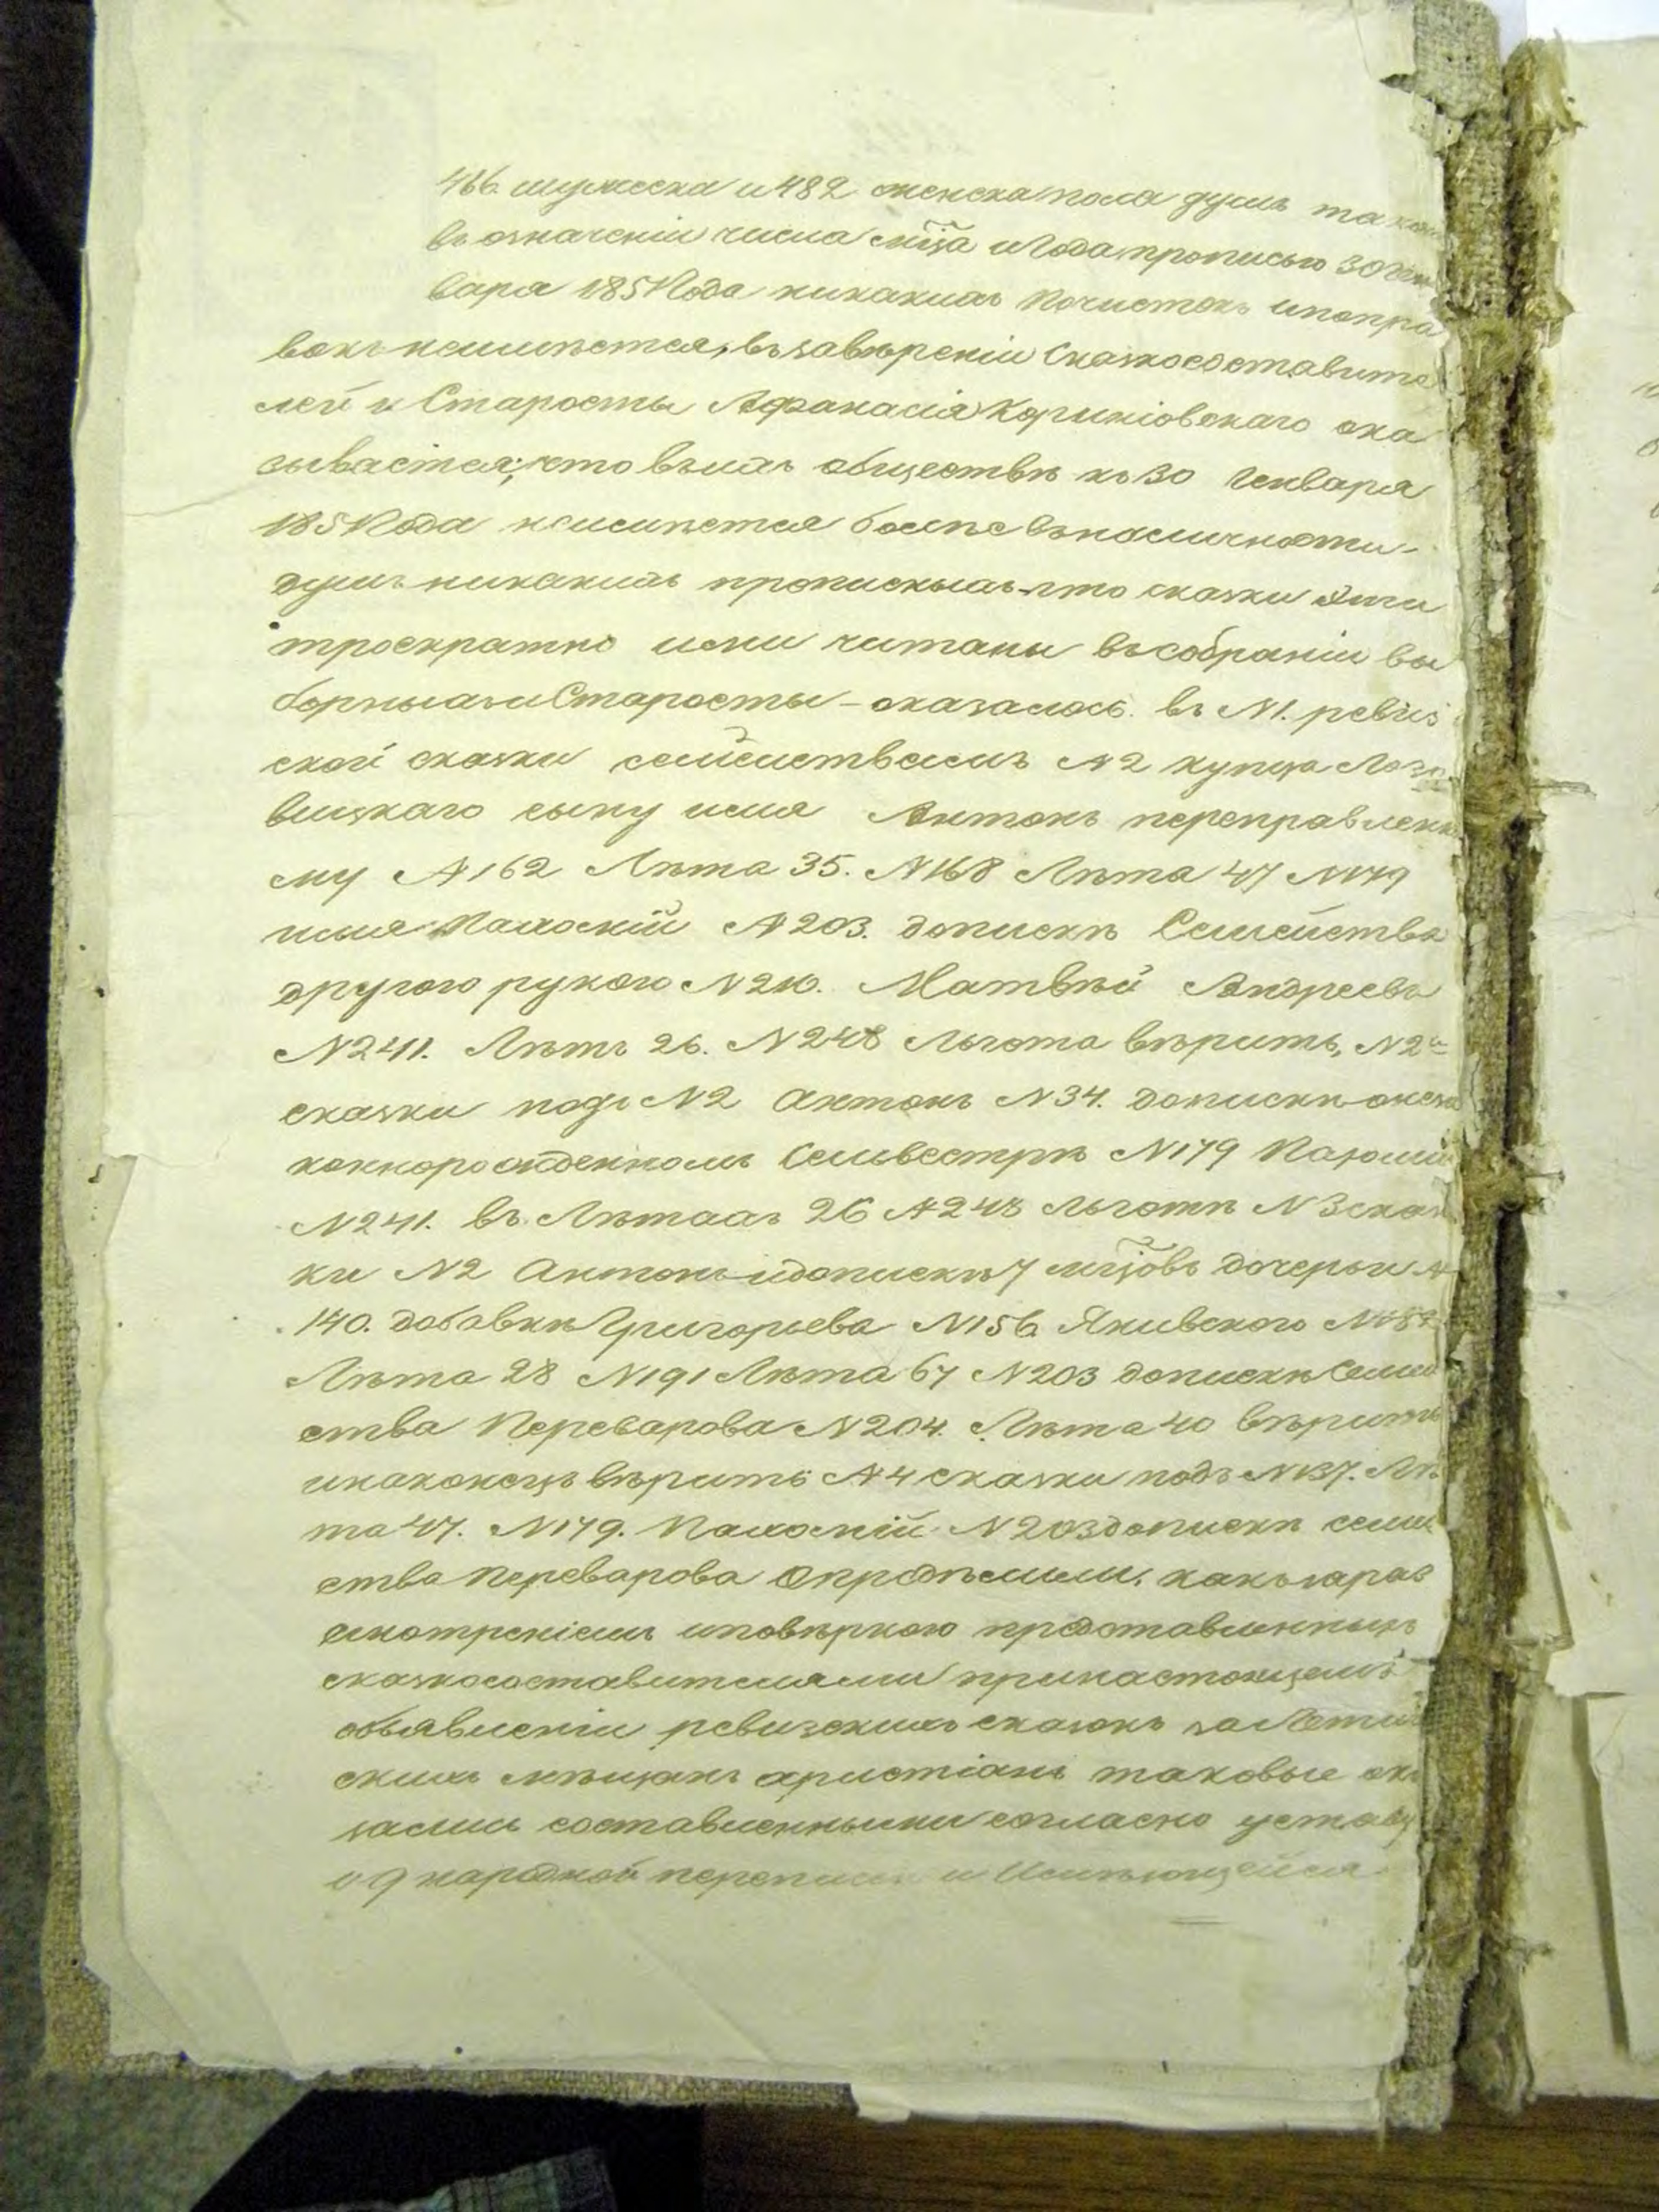 466. мужеска и 482 женска пола душъ
въ означеніи числа мца и года прописью 30 Ген
варя 1851 года никакихъ почистокъ и попра
вокъ неимѣется, въ завѣреніи сказкосоставите
лей и Старосты Афанасія ока
зывается, что въ ихъ обществѣ къ 30 Генваря
1851 года неимѣется болѣе въ наличности
душъ никакихъ прописныхъ что сказки эти
троекратно ими читаны въ собраніи вы
борныхъ и Старосты - оказалось. въ №1. ревиз
ской сказки семействамъ №2 купца Лозо
вицкаго сыну имя Антонъ переправлен
му №162 Лѣта 35. №168 Лѣта 47 №179
имя №203. дописки Семейства
другою рукою Матвѣй Андреевъ
№241. Лѣтъ 26. №248 Льгота вѣрить, №2й
сказки подъ №2 Антонъ №34. дописки
Сельвестрѣ №179
№241. въ Лѣтахъ 26 №248 льготы №3 сказ
ки №2 Антонъ и дописки 7 мцовъ дочерьи №
140. добавки Григорьева №156 Якивского
Лѣта 28 №191 Лѣта 67 №203 дописки Семей
ства Переварова №204. Лѣта 40 вѣрить
и наконецъ вѣрить №4 сказки подъ №137. Лѣ
та 47. №179. №203 дописки семей
ства Переварова Опредѣлили. какъ за раз
смотреніемъ и повѣркою представленныхъ
сказкосоставителями при настоящемъ
объявленіи ревизскихъ сказокъ за Летич
скихъ мѣщанъ христіанъ таковые ока
зались составленными согласно уставу
о 9 народной переписи и Имѣющейся